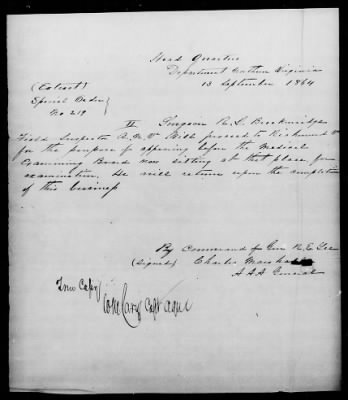 Head Quarters
Department Northern Virginia
13 September 1864
(Extract)
Special Order
No 219
II Surgeon R. C. Breckinridge
Field Inspector A.N.V. will proceed to Richmond Va
for the purpose of appearing before the Medical
Examining Board now sitting at that place for
examination. He will return upon the completion
of this business
By Command of Gen R. E. Lee
(Signed) Charles Marshall
A A A General
True Copy